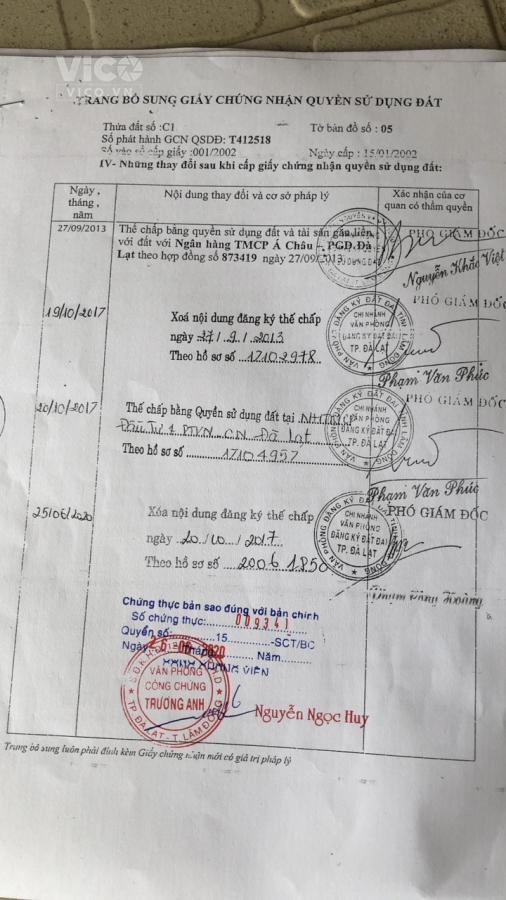 ViCO
vico.vn
TRANG BỔ SUNG GIẤY CHỨNG NHẬN QUYỀN SỬ DỤNG ĐẤT
Thửa đất số :C1 Tờ bản đồ số : 05
Số phát hành GCN QSDĐ: T412518
Số vào sổ cấp giấy :001/2002 Ngày cấp : 15/01/2002
IV- Những thay đổi sau khi cấp giấy chứng nhận quyền sử dụng đất:
Ngày , tháng , năm
Nội dung thay đổi và cơ sở pháp lý
Xác nhận của cơ quan có thẩm quyền
27/09/2013
Thế chấp bằng quyền sử dụng đất và tài sản gắn liền
với đất với Ngân hàng TMCP Á Châu – PGD Đà
Lạt theo hợp đồng số 873419 ngày 27/09/2013
PHÓ GIÁM ĐỐC
Nguyễn Khắc Việt
19/10/2017
Xoá nội dung đăng ký thế chấp
ngày 27/.9./.2013
Theo hồ sơ số ...17102978
VĂN PHÒNG ĐĂNG KÝ ĐẤT ĐAI TỈNH LÂM ĐỒNG
CHI NHÁNH
VĂN PHÒNG
ĐĂNG KÝ ĐẤT ĐAI
TP. ĐÀ LẠT
PHÓ GIÁM ĐỐC
Phạm Văn Phúc
20/10/2017
Thế chấp bằng Quyền sử dụng đất tại
Đầu Tư & PTVN CN Đà Lạt
Theo hồ sơ số 17104957
CHI NHÁNH
VĂN PHÒNG
ĐĂNG KÝ ĐẤT ĐAI
TP. ĐÀ LẠT
PHÓ GIÁM ĐỐC
Phạm Văn Phúc
25/06/2020
Xóa nội dung đăng ký thế chấp
ngày ..20../10.../...2017
Theo hồ sơ số ....20061850
VĂN PHÒNG ĐĂNG KÝ ĐẤT ĐAI TỈNH LÂM ĐỒNG
CHI NHÁNH
VĂN PHÒNG
ĐĂNG KÝ ĐẤT ĐAI
TP. ĐÀ LẠT
PHÓ GIÁM ĐỐC
Chứng thực bản sao đúng với bản chính
Số chứng thực:..........009341
Quyển số:..............15.............-SCT/BC
Ngày Tháng Năm
CÔNG CHỨNG VIÊN
VĂN PHÒNG
CÔNG CHỨNG
TRƯƠNG ANH
TP ĐÀ LẠT - T. LÂM ĐỒNG
Nguyễn Ngọc Huy
Trang bổ sung luôn phải đính kèm Giấy chứng nhận mới có giá trị pháp lý